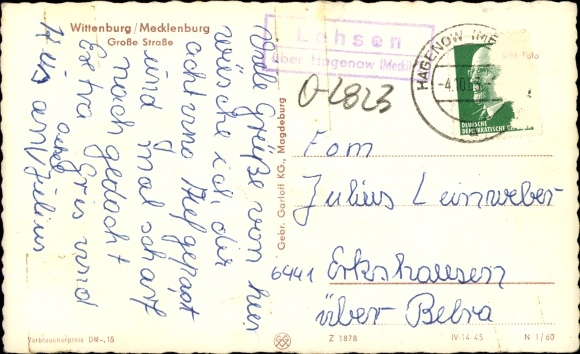 Wittenburg/Mecklenburg
Große Straße
Viele Grüße von hier
wüsche ich dir
acht und Aufgepast
und mal scharf
nach gedacht
Extra Gris und
Kus an Julius
Lehsen
über Hagenow (Meckl)
HAGENOW (ME
-4.10.6
DEUTSCHE
DEMOKRATISCHE
Foto
0-2823
Fam
Julius Leinweber
6441 Erkshausen
über Bebra
Gebr. Garloff KG., Magdeburg
Verbraucherpreis DM -,15
Z 1878
IV-14-45
N 1/60